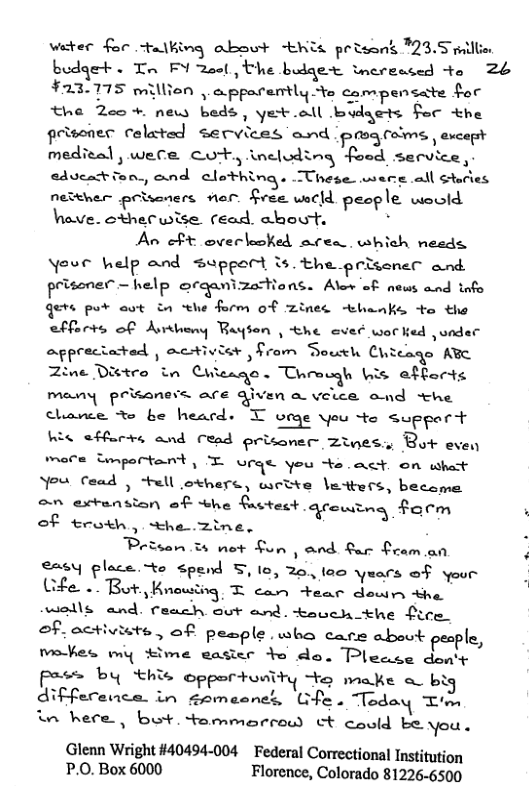 water for talking about this prison's $23.5 million
budget. In FY 2001, the budget increased to 26
$23.775 million, apparently to compensate for
the 200+ new beds, yet all budgets for the
prisoner related services and programs, except
medical, were cut, including food service,
education, and clothing. These were all stories
neither prisoners nor free world people would
have otherwise read about.
An oft overlooked area which needs
your help and support is the prisoner and
prisoner-help organizations. Alot of news and info
gets put out in the form of zines thanks to the
efforts of Anthony Rayson, the over worked, under
appreciated, activist, from South Chicago ABC
Zine Distro in Chicago. Through his efforts
many prisoners are given a voice and the
chance to be heard. I urge you to support
his efforts and read prisoner zines. But even
more important, I urge you to act on what
you read, tell others, write letters, become
an extension of the fastest growing form
of truth, the zine.
Prison is not fun, and far from an
easy place to spend 5, 10, 20, 100 years of your
life. But, Knowing I can tear down the
walls and reach out and touch the fire
of activists, of people who care about people,
makes my time easier to do. Please don't
pass by this opportunity to make a big
difference in someone's life. Today I'm
in here, but tommorrow it could be you.
Glenn Wright #40494-004 Federal Correctional Institution
P.O. Box 6000 Florence, Colorado 81226-6500